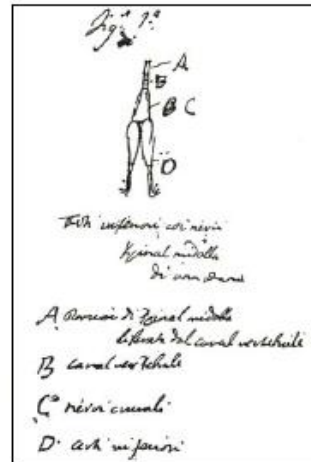 Fig.ª 1.ª
A
B
B C
D
Arti inferiori coi nervi
Spinal midolla
di una rana
A Porzioni di Spinal midolla
dal canal vertebrale
B canal vertebrale
C nervi crurali
D arti inferiori